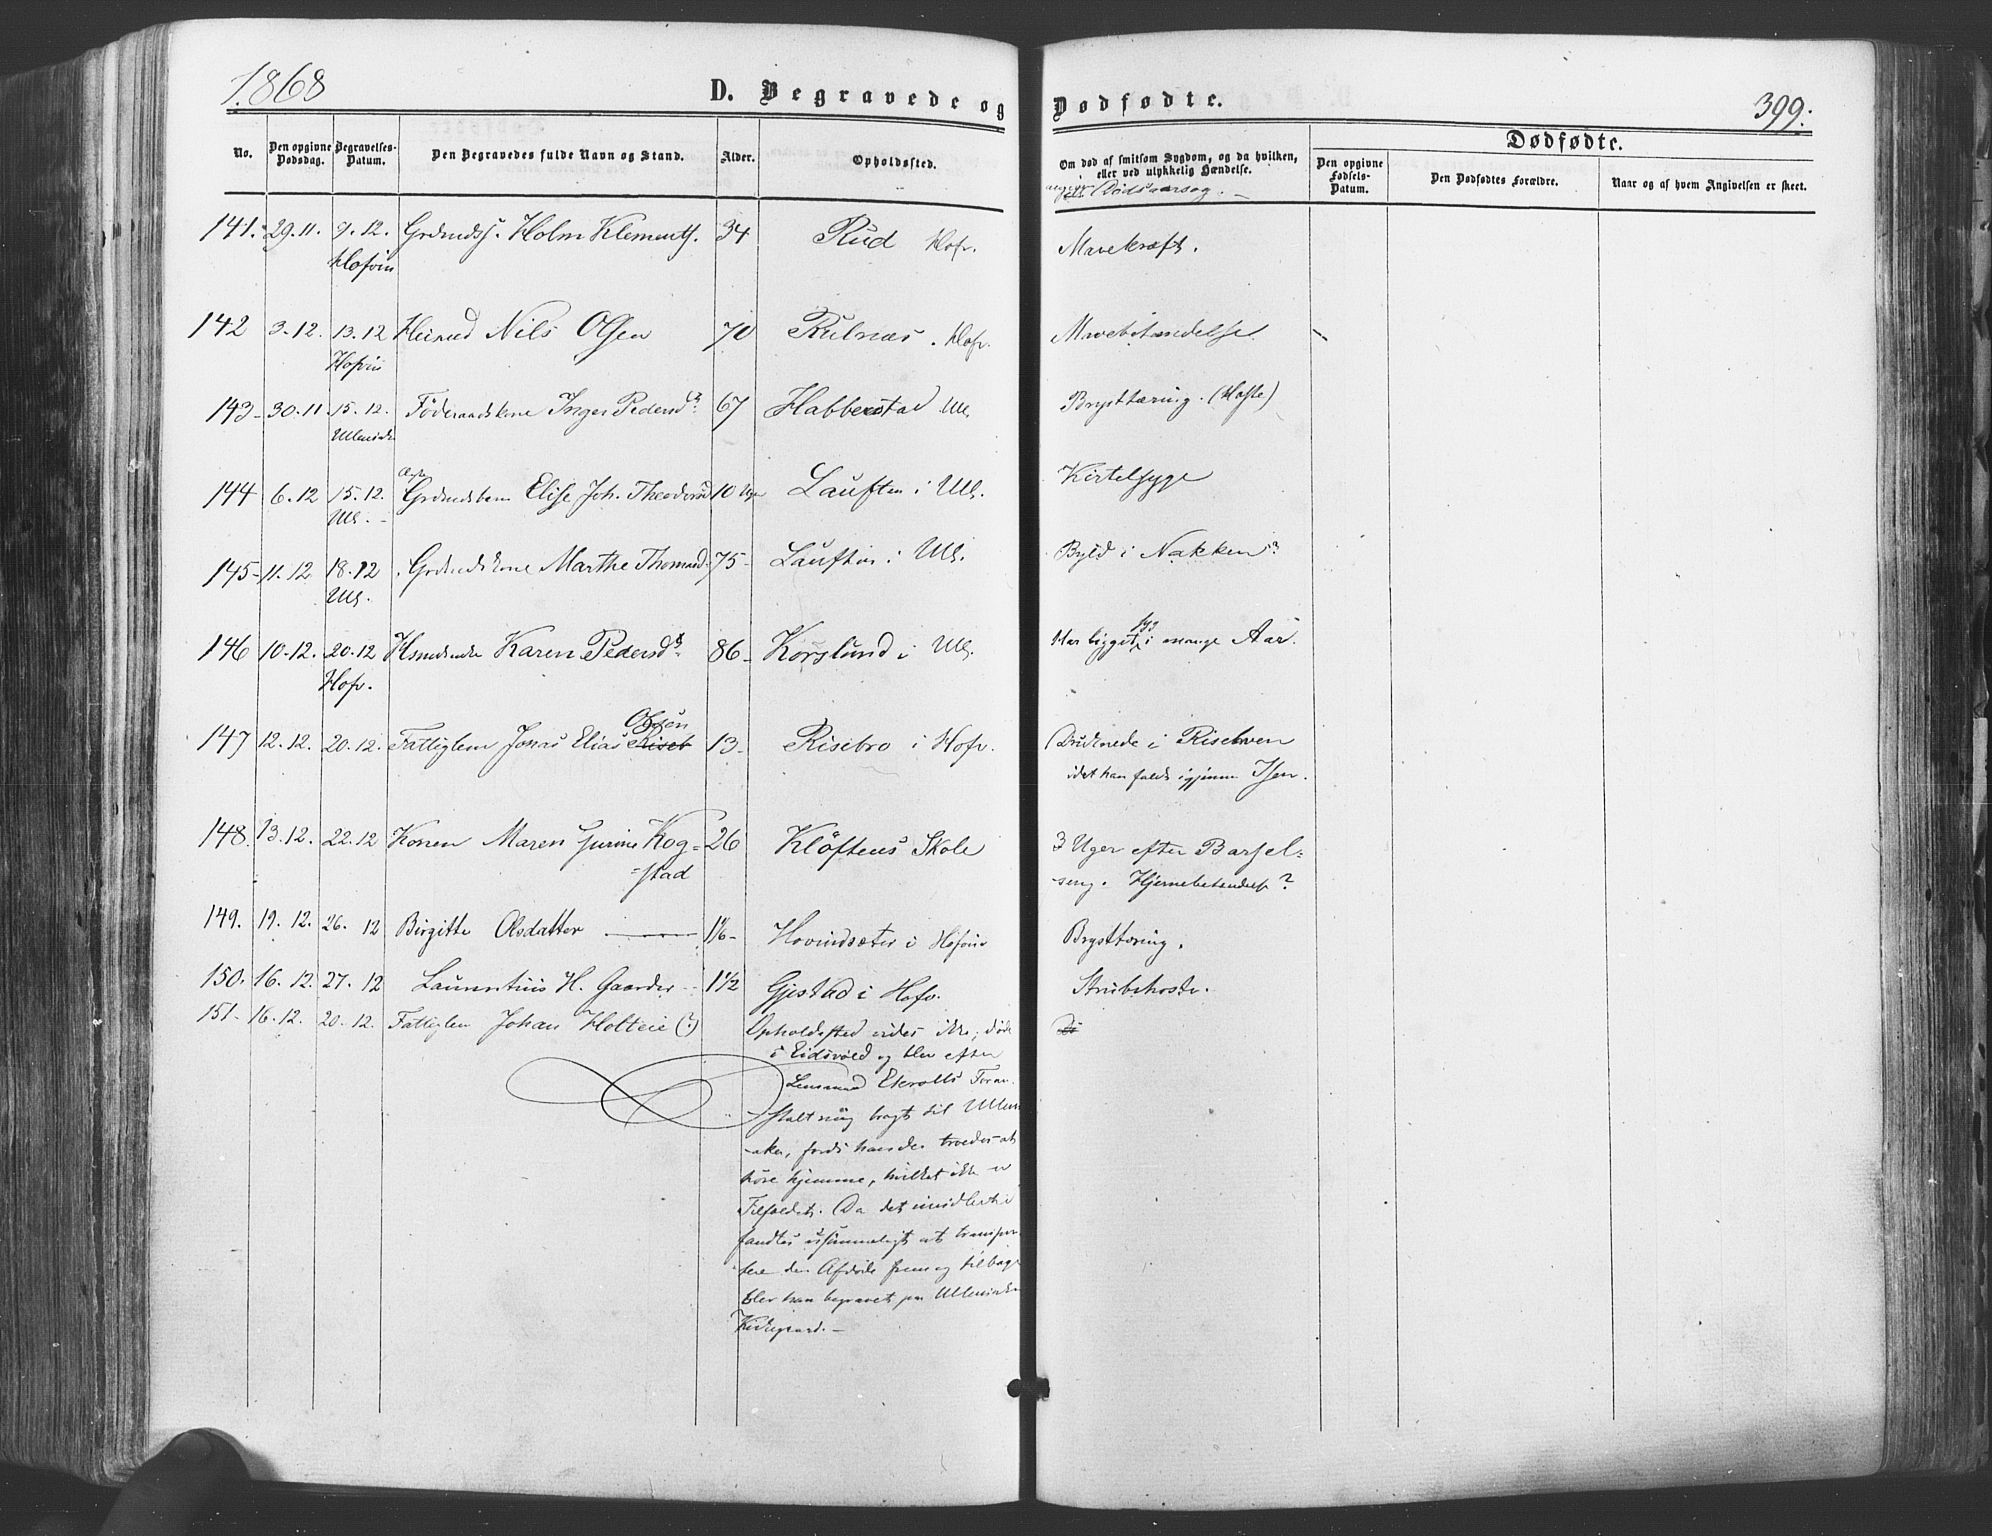 1868
D. Begravede og Dødfødte.
399.
No.
Den opgivne Dødsdag.
Begravelses-Datum.
Den Begravedes fulde Navn og Stand.
Alder.
Opholdssted.
Om død af smitsom Sygdom, og da hvilken,
eller ved ulykkelig Hændelse.
Dødsaarsag. —
Dødfødte.
Den opgivne Fødsels-Datum.
Den Dødfødtes Forældre.
Naar og af hvem Angivelsen er skeet.
141. 29.11. 7.12. Holm Klements. 34 Rud Hofv. Mavekræft.
Hofvin
142 3.12. 13.12 Nils Olsen 70 Rulnæs. Hofv. Mavebetændelse
Hofvin
143 30.11. 15.12. Föderaadskone Inger Pedersd. 67 Habberstad Ull. Brysttæring. (Hoste)
Ullensaker
144 6.12 15.12. Elise Joh. Theodorsd 10 Uger Lauften i Ull. Kirtelsyge
Ull.
145 11.12 18.12 Marthe Thomasd. 75 Lauften i Ull. Byld i Nakken?
Ull.
146 10.12. 20.12 Karen Pedersd. 86 Korslund i Ull. Har ligget syg i mange Aar.
Hofv.
147 12.12. 20.12. Fattiglem Jonas Elias Olsen 13 Risebro i Hofv. Druknede i Riselven
idet han faldt igjennem Isen.
148. 13.12. 22.12 Konen Maren Gurine Kog= 26 Klöftens Skole 3 Uger efter Barsel=
-stad
seng. Hjernebetændelse?
149. 19.12. 26.12 Birgitte Olsdatter Hovindsæter i Hofvin Brysttæring.
150. 16.12. 27.12 Laurentius H. Gaarder 1 1/2 Gjestad i Hofv. Strubehoste.
151 16.12. 20.12. Fattiglem Johan Holteie (?) Opholdssted vides ikke; døde
i Eidsvold og blev efter
Lensmand Foran-
staltning bragt til Ullens-
aker, fordi han der troedes at
høre hjemme, hvilket ikke er
Tilfældet. Da det imidlertid
fandtes usømmeligt at transpor-
tere den Afdøde frem og tilbage
blev han begravet paa Ullensaker
Kirkegaard. —